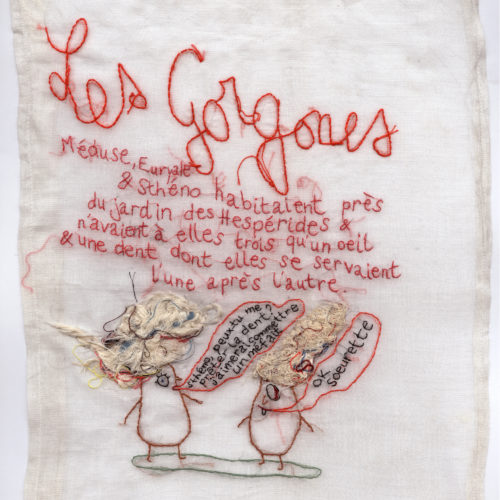 Les Gorgones
Méduse, Euryale
& Sthéno habitaient près
du jardin des Hespérides &
n'avaient à elles trois qu'un oeil
& une dent dont elles se servaient
l'une après l'autre.
Sthéno, peux tu me
prêter la dent
j'aimerai commettre
un méfait
OK
soeurette